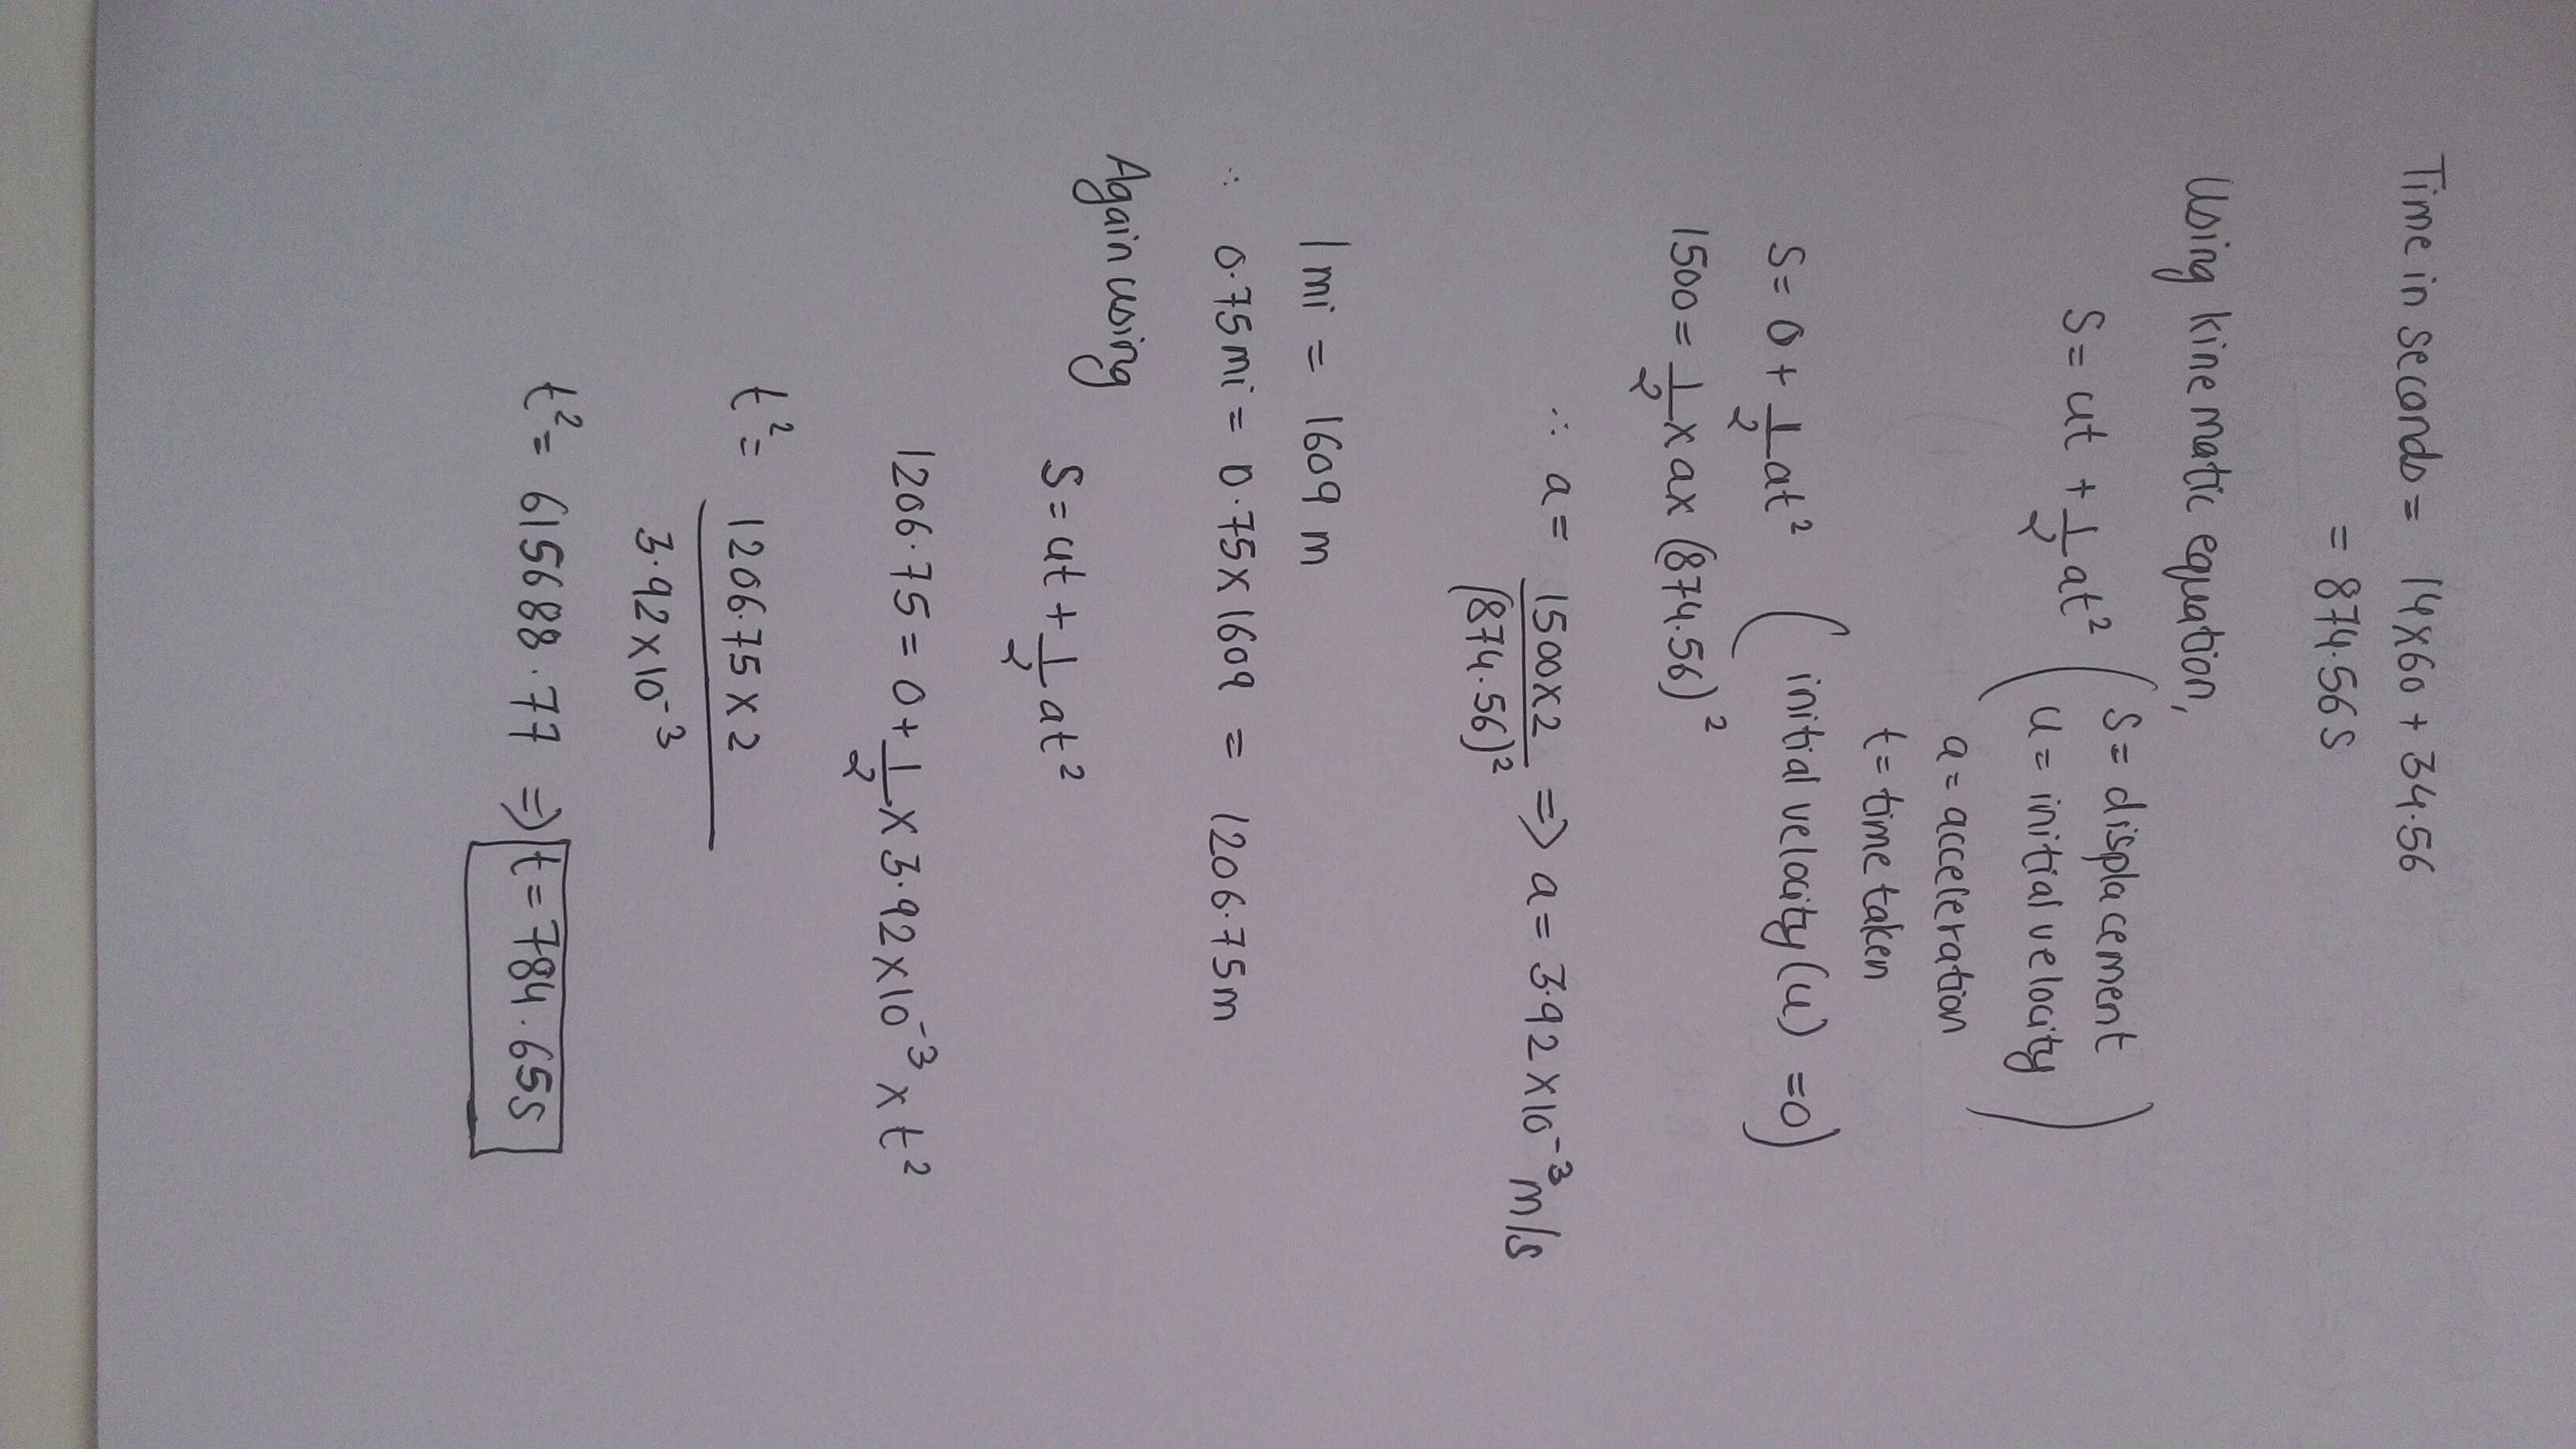 Time in seconds = 14x60 + 34.56
= 874.56 s
Using kinematic equation,
S = ut + 1/2 at² ( S = displacement
u = initial velocity )
a = acceleration
t = time taken
S = 0 + 1/2 at² ( initial velocity (u) = 0)
1500 = 1/2 x a x (874.56)²
∴ a = 1500x2 / (874.56)² => a = 3.92 x 10⁻³ m/s
1 mi = 1609 m
∴ 0.75 mi = 0.75 x 1609 = 1206.75 m
Again using
S = ut + 1/2 at²
1206.75 = 0 + 1/2 x 3.92 x 10⁻³ x t²
t² = 1206.75 x 2 / 3.92 x 10⁻³
t² = 615688.77 => t = 784.65 s